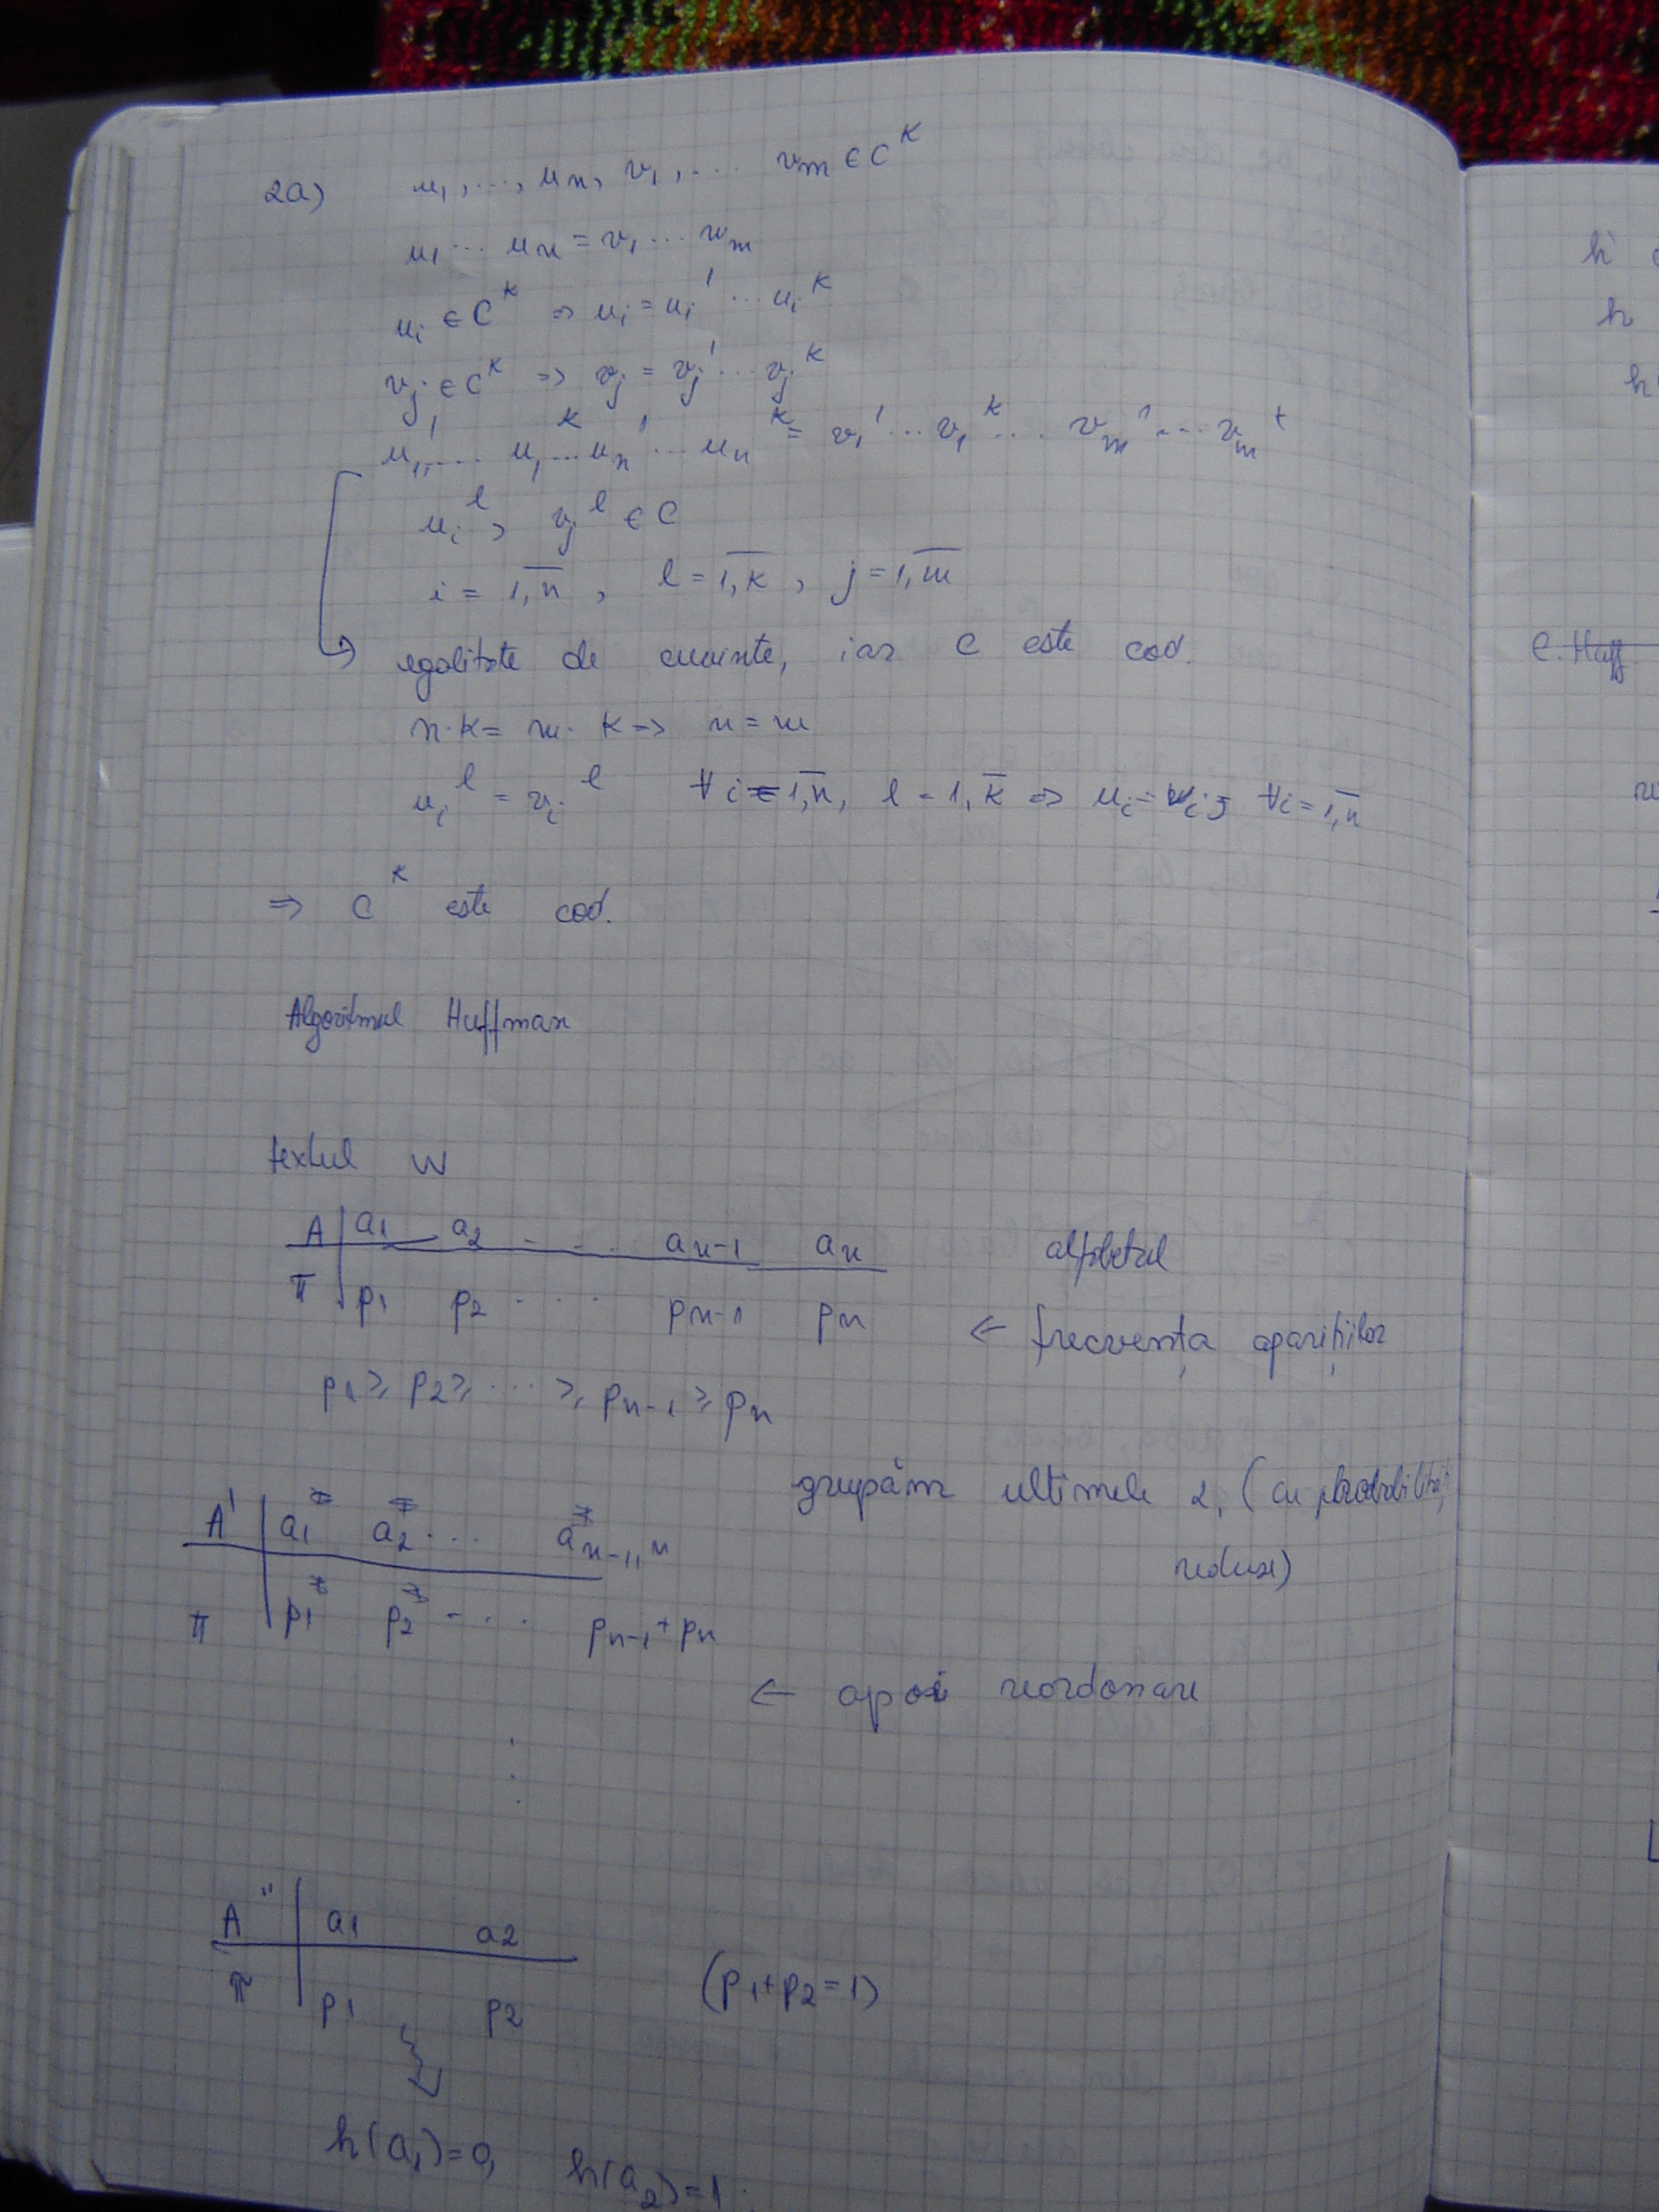 2a) u₁, ..., uₙ, v₁, ... vₘ ∈ C^K
u₁ ... uₙ = v₁ ... vₘ
uᵢ ∈ C^K ⇒ uᵢ = uᵢ¹ ... uᵢ^K
vⱼ ∈ C^K ⇒ vⱼ = vⱼ¹ ... vⱼ^K
u₁¹, ... u₁^K ... uₙ¹ ... uₙ^K = v₁¹ ... v₁^K ... vₘ¹ ... vₘ^t
uᵢ^l, vⱼ^l ∈ C
i = 1,n̅, l = 1,k̅, j = 1,m̅
egalitate de cuvinte, iar C este cod.
n·K = m·K ⇒ n = m
uᵢ^l = vᵢ^l ∀i = 1,n̅, l = 1,k̅ ⇒ uᵢ = vᵢ, ∀i = 1,n̅
⇒ C^K este cod.
Algoritmul Huffman
textul W
A | a₁ a₂ ... aₙ₋₁ aₙ alfabetul
π | p₁ p₂ ... pₙ₋₁ pₙ ← frecvența aparițiilor
p₁ ≥ p₂ ≥ ... ≥ pₙ₋₁ ≥ pₙ
grupăm ultimele 2, (cu probabilități
reduse)
A' | a₁ a₂ ... aₙ₋₁,ₙ
π | p₁ p₂ ... pₙ₋₁ + pₙ
← apoi reordonare
⋮
A'' | a₁ a₂
π | p₁ p₂ (p₁+p₂=1)
h(a₁)=0, h(a₂)=1.
h
h
h
C. Huff.